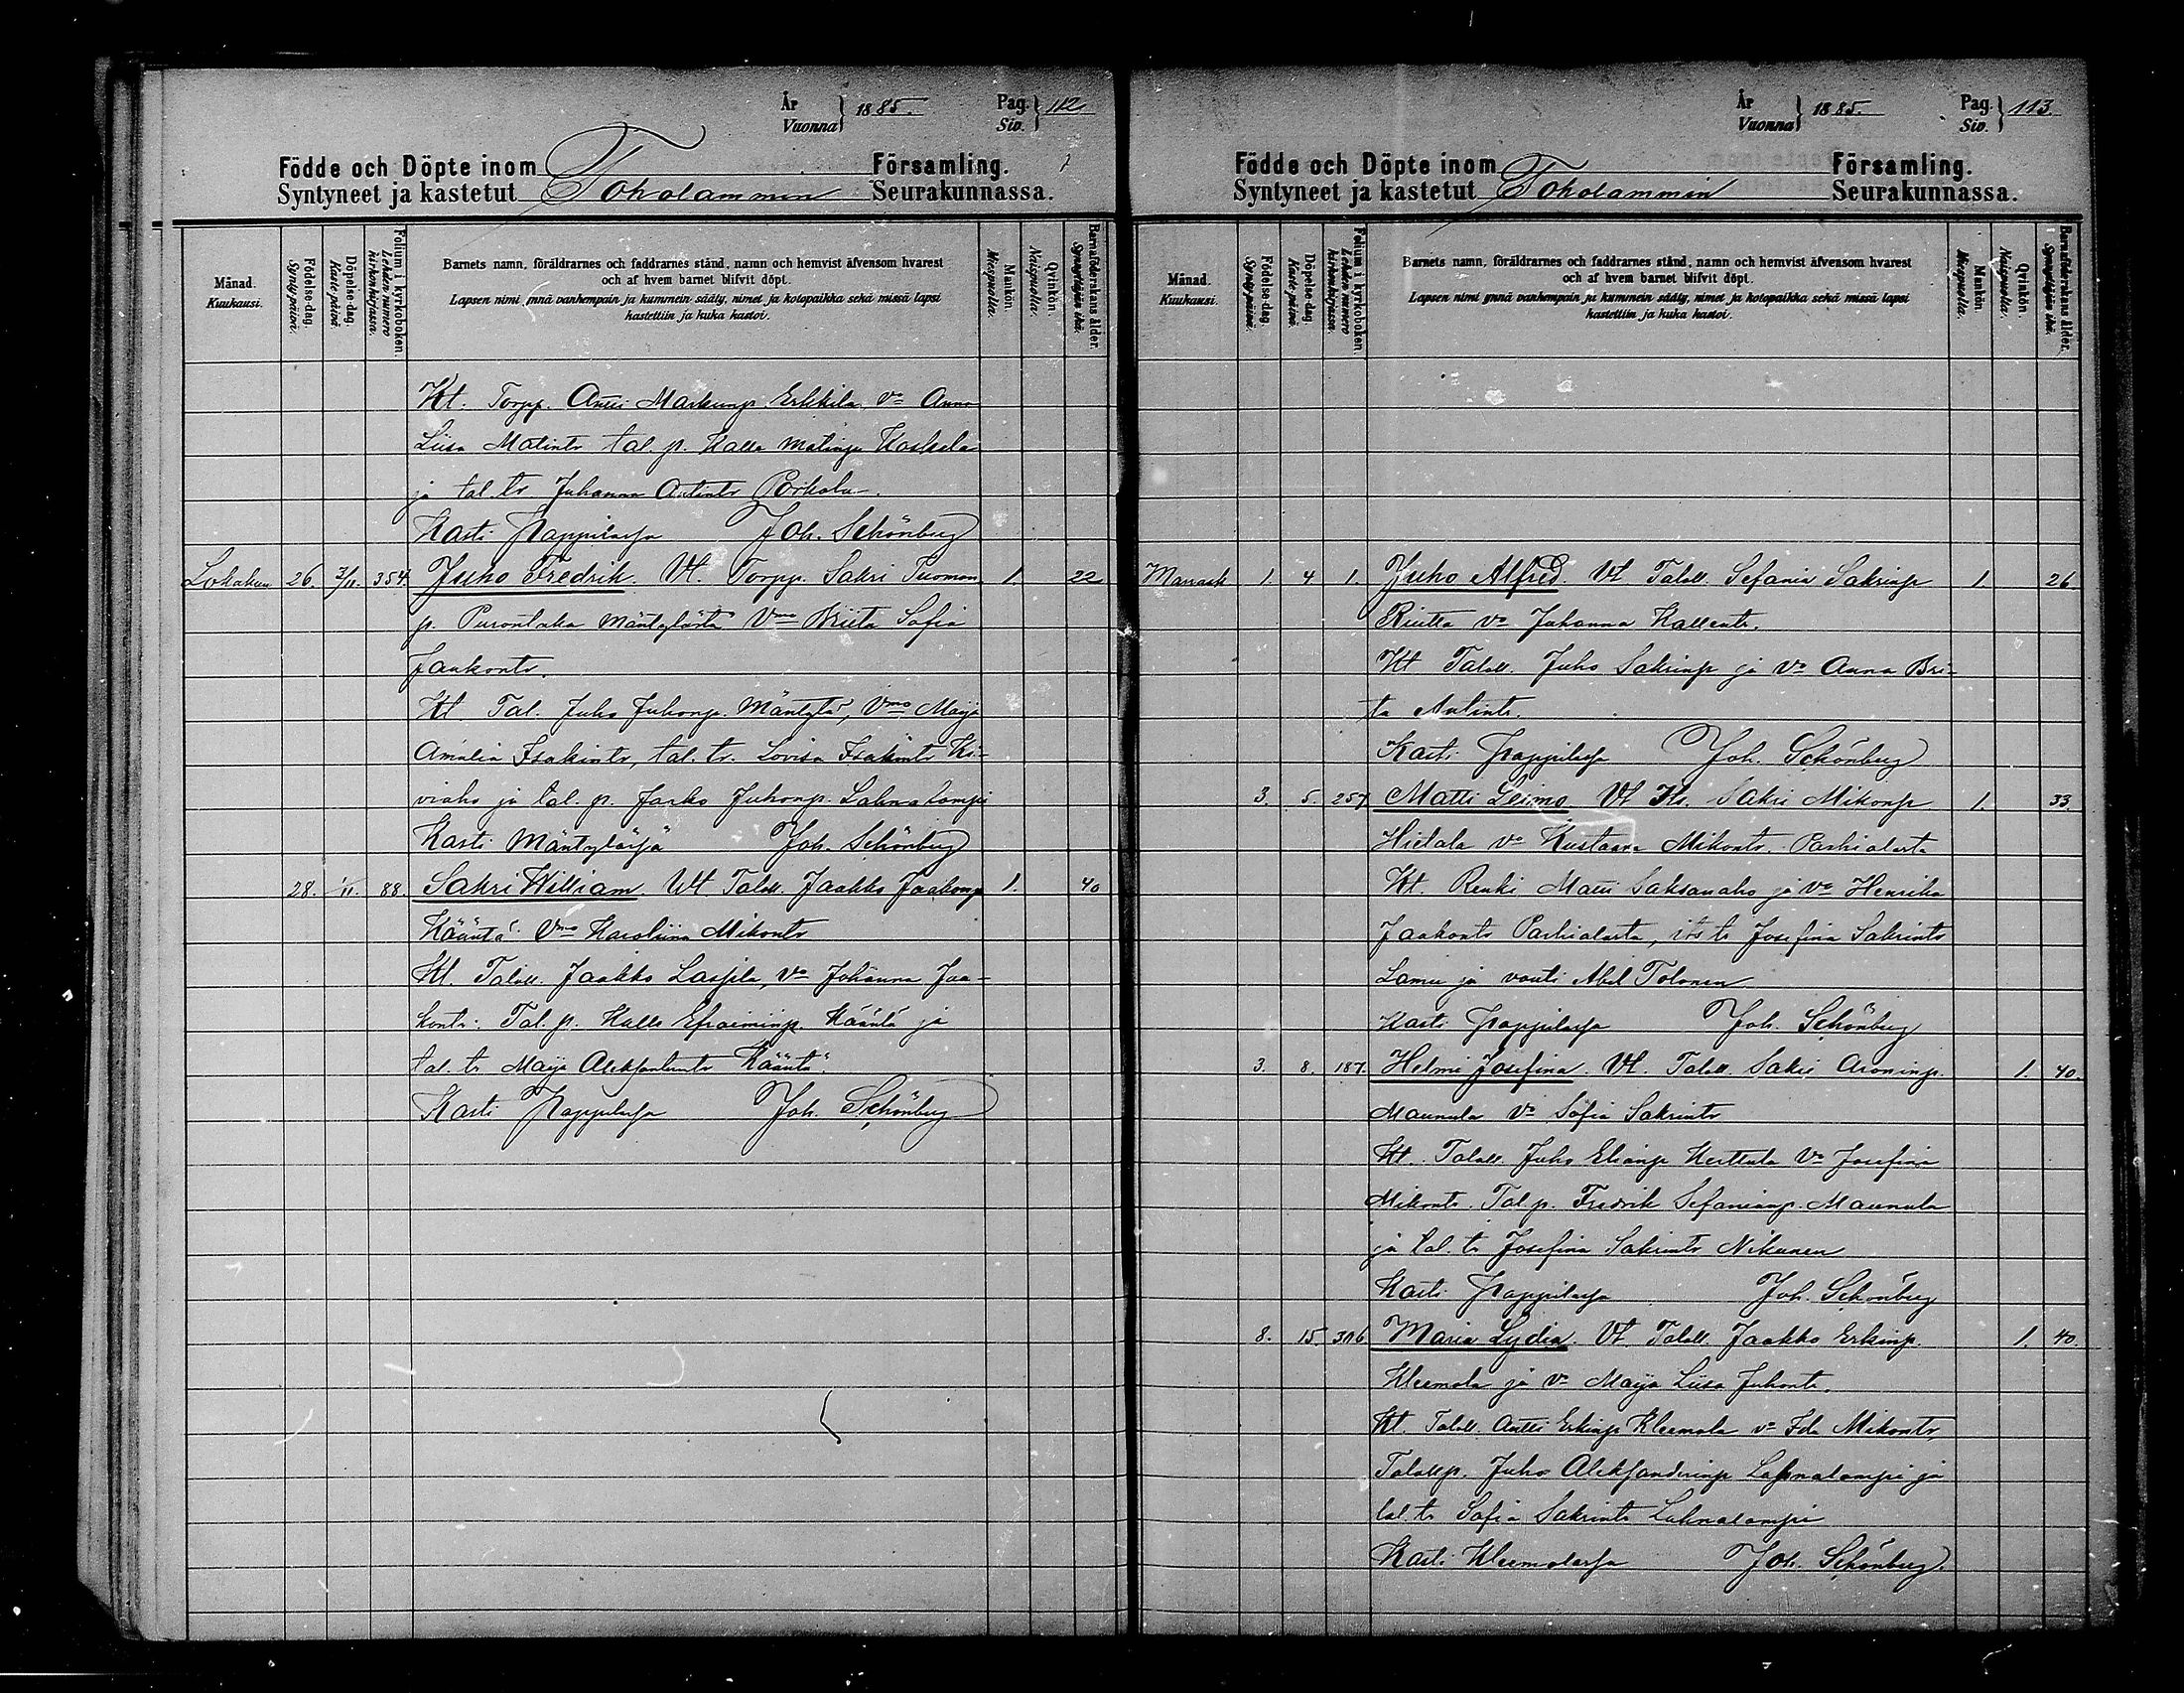 År
Vuonna } 1885. Pag.
Siv. } 112
Födde och Döpte inom Församling.
Syntyneet ja kastetut Toholammin Seurakunnassa.
Månad.
Kuukausi.
Födelse-dag.
Synty-päivä.
Döpelse-dag.
Kaste-päivä.
Folium i kyrkoboken.
Lehden numero
kirkonkirjassa.
Barnets namn, föräldrarnes och faddrarnes stånd, namn och hemvist äfvensom hvarest
och af hvem barnet blifvit döpt.
Lapsen nimi ynnä vanhempain ja kummein sääty, nimet ja kotopaikka sekä missä lapsi
kastettiin ja kuka kastoi.
Mankön.
Miespuolia.
Qvinkön.
Naispuolia.
Barnaföderskans ålder.
Synnyttäjän ikä.
Kt. Torpp. Antti Markunp. Erkkila Vo Anna
Liisa Matintr tal. p. Kalle Matinp. Koskela
ja tal. tr Juhanna Antintr Porkola.
Kasti Pappilassa Joh. Schönberg
Lokakuu 26. 3/11. 354. Juho Fredrik. Vt. Torpp. Sakri Tuomon 1. 22
p. Purontaka Mäntylästä Vmo Briita Sofia
Jaakontr.
Kt Tal. Juho Juhonp. Mäntylä, Vmo Maija
Amalia Isakintr, tal. tr. Lovisa Isakintr Ki-
viaho ja tal. p. Jaako Juhonp. Lahnalampi
Kasti Mäntylässä Joh. Schönberg
28. 1/11. 88. Sakri William. Vt. Taloll. Jaakko Jaakonp 1. 40
Kääntä. Vmo Karoliina Mikontr
Kt. Taloll. Jaakko Laspila, Vo Johanna Jaa-
kontr. Tal. p. Kalle Efraiminp. Kääntä ja
tal. tr Maija Aleksantintr Kääntä.
Kasti Pappilassa Joh. Schönberg
År
Vuonna } 1885. Pag.
Siv. } 113.
Födde och Döpte inom Församling.
Syntyneet ja kastetut Toholammin Seurakunnassa.
Månad.
Kuukausi.
Födelse-dag.
Synty-päivä.
Döpelse-dag.
Kaste-päivä.
Folium i kyrkoboken.
Lehden numero
kirkonkirjassa.
Barnets namn, föräldrarnes och faddrarnes stånd, namn och hemvist äfvensom hvarest
och af hvem barnet blifvit döpt.
Lapsen nimi ynnä vanhempain ja kummein sääty, nimet ja kotopaikka sekä missä lapsi
kastettiin ja kuka kastoi.
Mankön.
Miespuolia.
Qvinkön.
Naispuolia.
Barnaföderskans ålder.
Synnyttäjän ikä.
Marrask 1. 4 1. Juho Alfred. Vt Taloll. Sefania Sakrinp 1. 26.
Riutta Vo Johanna Kallentr.
Kt Taloll. Juho Sakrinp ja Vo Anna Bri-
ta Antintr.
Kasti Pappilassa Joh. Schönberg
3. 5. 257 Matti Leimo Vt Its. Sakri Mikonp 1. 33.
Hietala Vo Kustaava Mikontr. Parhialasta
Kt. Renki Matti Saksanaho ja Vo Henrika
Jaakontr Parhialasta, its tr Josefina Sakrintr
ja vouti Abel Tolonen
Kasti Pappilassa Joh. Schönberg
3. 8. 187. Helmi Josefina. Vt. Taloll. Sakri Aroninp. 1. 40.
Maunula Vo Sofia Sakrintr
Kt. Taloll. Juho Elianp Herttula Vo Josefina
Mikontr. Tal p. Fredrik Sefanianp. Maunula
ja tal. tr Josefina Sakrintr Nikunen
Kasti Pappilassa Joh. Schönberg
8. 15. 316 Maria Lydia. Vt. Taloll. Jaakko Erkinp. 1. 40.
Kleemola ja Vo Maija Liisa Juhontr.
Kt. Taloll. Antti Erkinp Kleemola Vo Ida Mikontr,
Taloll p. Juho Aleksanderinp Lahnalampi ja
tal. tr Sofia Sakrintr Lahnalampi
Kasti Kleemolassa Joh. Schönberg.